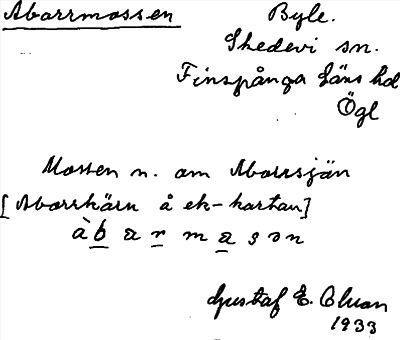 Aborrmossen Byle.
Skedevi sn.
Finspånga läns hd
Ögl
Mossen n. om Aborrsjön
[Aborrkärn å ek-kartan]
àb a r m a s ə n
Gustaf E. Oluan
1933